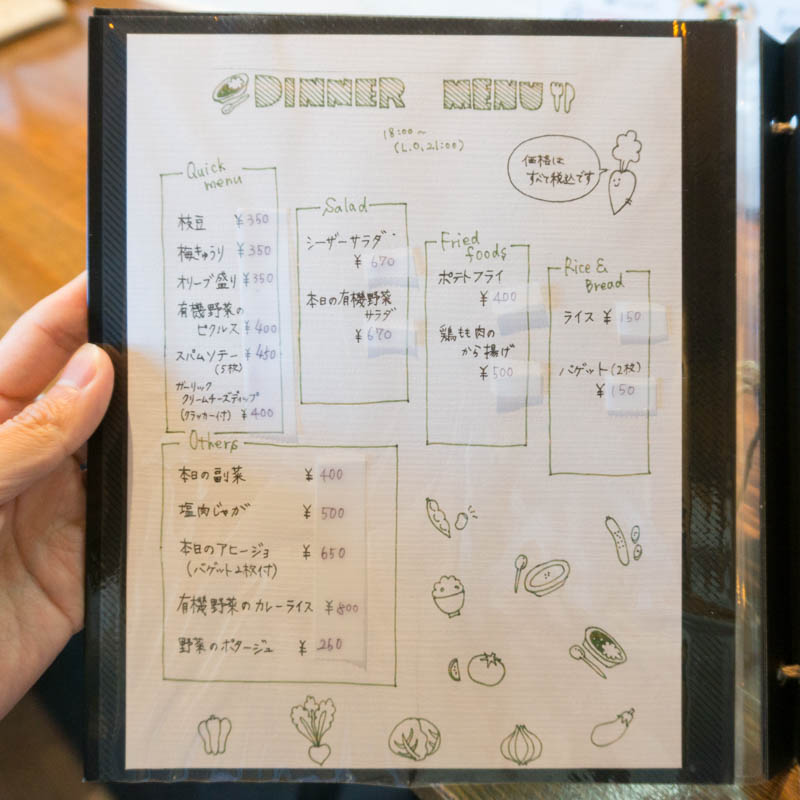 DINNER MENU
18:00～
(L.O.21:00)
価格は
すべて税込です
Quick
menu
枝豆 ¥350
梅きゅうり ¥350
オリーブ盛り ¥350
有機野菜の
ピクルス ¥400
スパムソテー ¥450
(5枚)
ガーリック
クリームチーズディップ
(クラッカー付) ¥400
Salad
シーザーサラダ
¥670
本日の有機野菜
サラダ
¥670
Fried
foods
ポテトフライ
¥400
鶏もも肉の
から揚げ
¥500
Rice &
Bread
ライス ¥150
バゲット(2枚)
¥150
Others
本日の副菜 ¥400
塩肉じゃが ¥500
本日のアヒージョ ¥650
(バゲット2枚付)
有機野菜のカレーライス ¥800
野菜のポタージュ ¥260